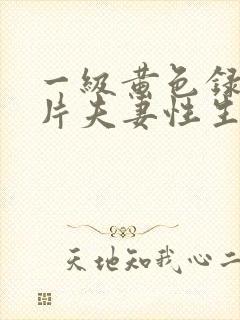 一級黄色録
片夫妻性生
天地知我心二